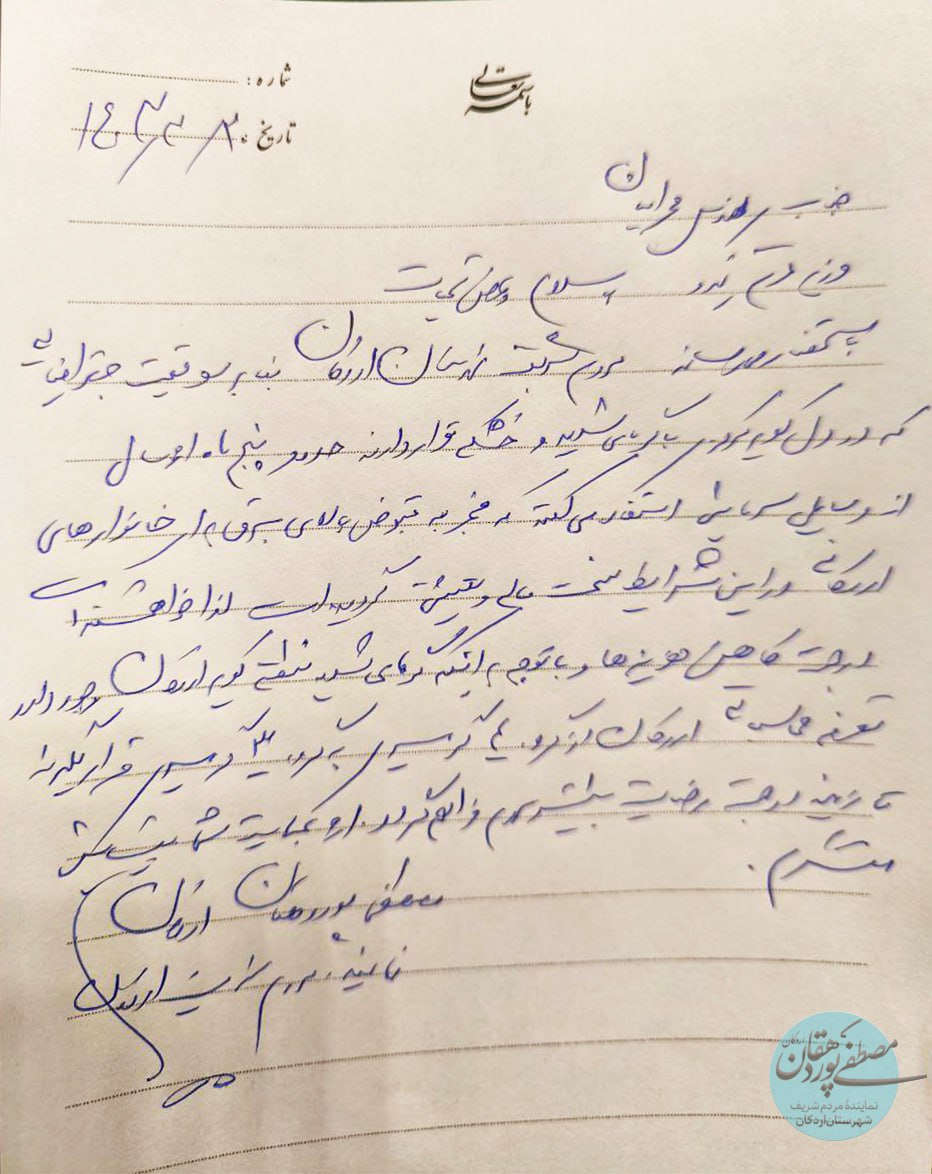 باسمه تعالی
شماره:
تاریخ: ۱۴۰۳/۳/۸
جناب مهندس محرابیان
وزیر محترم نیرو سلام و تحیات
مردم شریف شهرستان اردکان بنا بر موقعیت جغرافیایی
که در دل کویر گرمای شدید و خشکی قرار دارند حدود پنج ماه از سال
از وسایل سرمایشی استفاده می کنند که منجر به قبوض بالای برق برای خانوارهای
اردکانی در این شرایط سخت مالی و معیشتی گردیده است لذا خواهشمند است
در جهت کاهش هزینه ها و با توجه به اینکه گرمای شدید منطقه کویر اردکان وجود دارد
تعرفه محاسباتی اردکان از گروه گرمسیر به گروه گرمسیر قرار بگیرند
تا زمینه در جهت رضایت بیشتر مردم فراهم گردد. از عنایت شما پیشاپیش
متشکرم.
مصطفی پوردهقان اردکان
نماینده مردم شریف اردکان
مصطفی پوردهقان
اردکان
نمایندهٔ مردم شریف
شهرستان اردکان